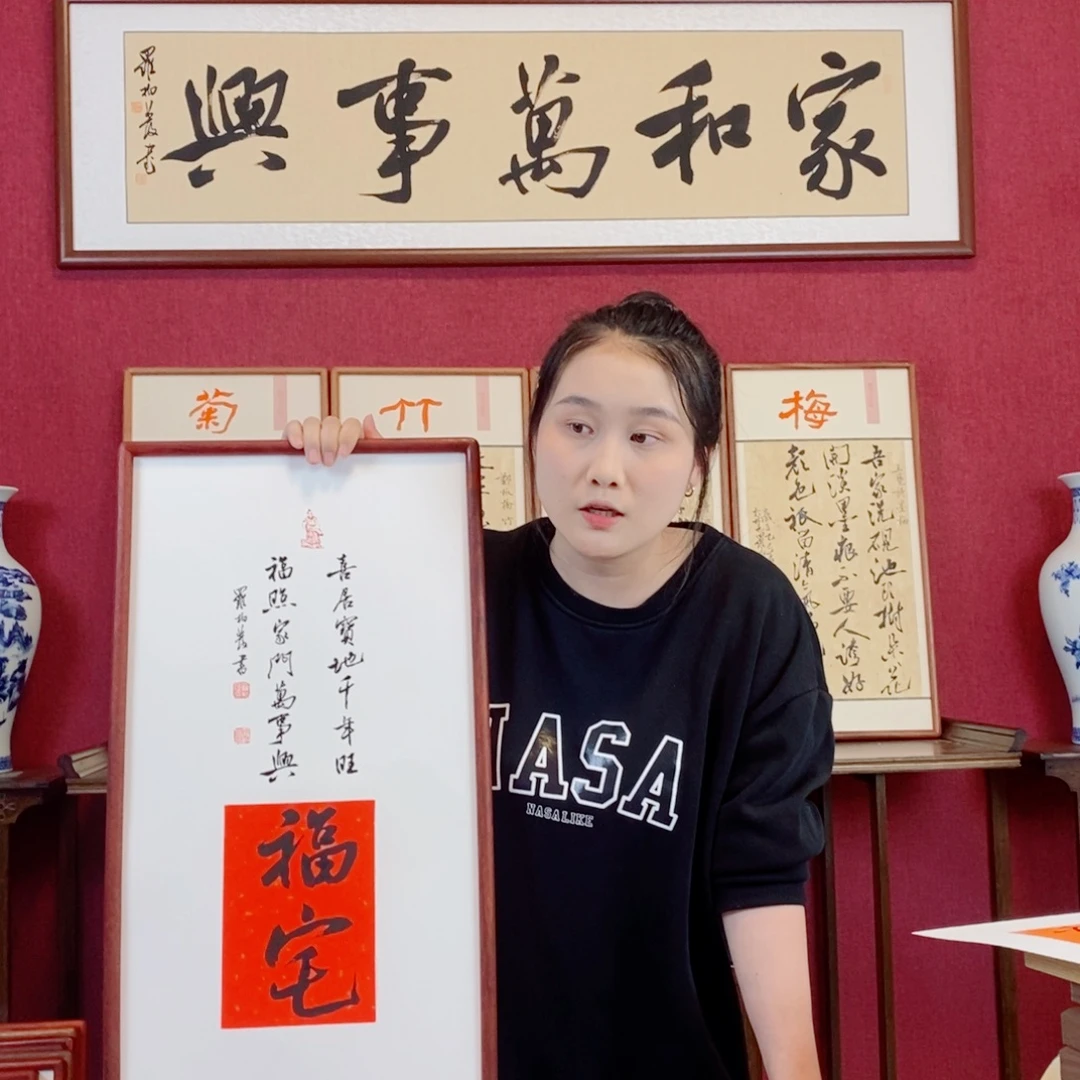 家和萬事興
羅柏農書
菊
竹
梅
吾家洗硯池頭樹
開淡墨痕不要人誇好
顏色祗留清氣
喜居寶地千年旺
福照家門萬事興
羅柏農書
福宅
NASA
NASALIKE